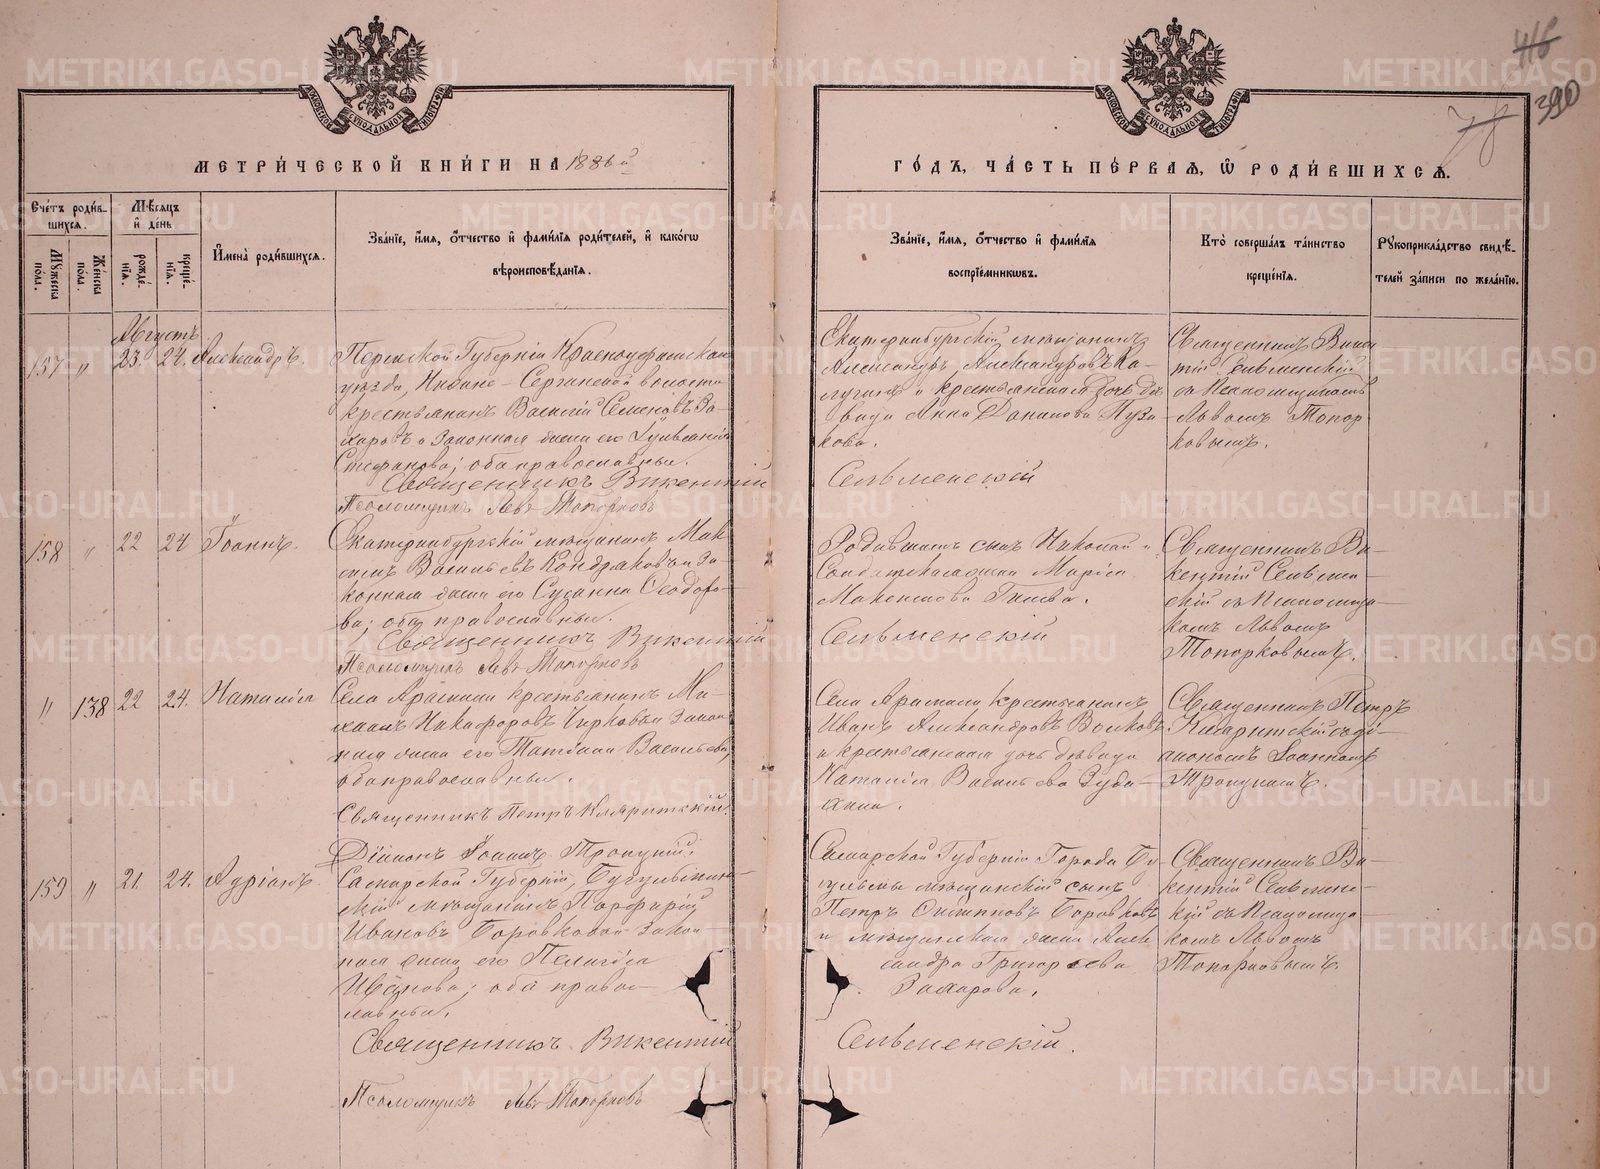 416
78
390
МЕТРИ́ЧЕСКОЙ КНИ́ГИ НА 1886 й
ГО́ДЪ, ЧА́СТЬ ПЕ́РВАЯ, Ѽ РОДИ́ВШИХСЯ.
Сче́тъ роди́в-
шихся.
Му́жеска по́ла.
Же́нска по́ла.
Мѣ́сяцъ
и҆ де́нь
рожде́-
нїя.
креще́-
нїя.
И҆мена̀ роди́вшихся.
Зва́нїе, и҆́мя, ѻ҆́тчество и҆ фами́лїя роди́телей, и҆ како́гѡ
вѣроисповѣ́данїя.
Зва́нїе, и҆́мя, ѻ҆́тчество и҆ фами́лїя
воспрїе́мниковъ.
Кто̀ соверша́лъ та́инство
креще́нїя.
Рꙋкоприкла́дство свидѣ́-
телей за́писи по жела́нїю.
Августъ
157 " 23 24. Александръ.
Пермской Губерніи Красноуфимскаго
уѣзда, Нижне-Сергинской волости
крестьянинъ Василій Семеновъ За-
харовъ и законная жена его Іуліанія
Стефанова; оба православные.
Священникъ Викентій
Псаломщикъ Левъ Топорковъ
Екатеринбургскій мѣщанинъ
Александръ Александровъ Ка-
лугинъ и крестьянская дочь дѣ-
вица Анна Данилова Пуза-
кова.
Сельменскій
Священникъ Викен-
тій Сельменскій
съ Псаломщикомъ
Львомъ Топор-
ковымъ.
158 " 22 24 Іоаннъ.
Екатеринбургскій мѣщанинъ Мак-
симъ Васильевъ Кондраковъ и за-
конная жена его Сусанна Ѳеодоро-
ва; оба православные.
Священникъ Викентій
Псаломщикъ Левъ Топорковъ
Родившихъ сынъ Николай и
Солдатская жена Марія
Максимова Гилева.
Сельменскій
Священникъ Ви-
кентій Сельмен-
скій съ Псаломщи-
комъ Львомъ
Топорковымъ.
" 138 22 24. Наталія
Села Арамили крестьянинъ Ми-
хаилъ Никифоровъ Чирковъ и закон-
ная жена его Татіана Васильева,
оба православные.
Священникъ Петръ Кларитскій.
Діаконъ Іоаннъ Троицкій.
Села Арамили крестьянинъ
Иванъ Александровъ Волковъ
и крестьянская дочь дѣвица
Наталія Васильева Зуба-
Священникъ Петръ
Кларитскій съ ді-
акономъ Іоанномъ
Троицкимъ.
159 " 21. 24. Адріанъ
Самарской Губерніи, Бугульмин-
скій мѣщанинъ Порфирій
Ивановъ Боровковъ и закон-
ная жена его Пелагія
Иванова; оба правос-
лавные.
Священникъ Викентій
Псаломщикъ Левъ Топорковъ
Самарской Губерніи Города Бу-
гульмы мѣщанскій сынъ
Петръ Боровковъ
и мѣщанская жена Алек-
сандра Григорьева
Захарова.
Сельменскій.
Священникъ Ви-
кентій Сельмен-
скій съ Псаломщи-
комъ Львомъ
Топорковымъ.
METRIKI.GASO-URAL.RU